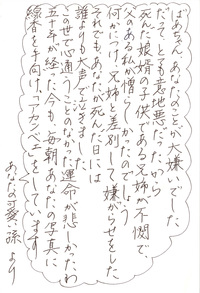 ばあちゃん あなたのことが大嫌いでした
だって、とても意地悪だったから
死んだ娘婿の子供である兄姉が不憫で、
父のある私が憎らしかったのでしょう
何かにつけ兄姉と差別して嫌がらせをした
それでも、あなたが死んだ日には
誰よりも大声で泣きました
この世で心通うことのなかった運命が悲しかったわ
五十年が経った今も毎朝あなたの写真に
線香を手向け、「アカンベェ」をしています
あなたの可愛い孫より